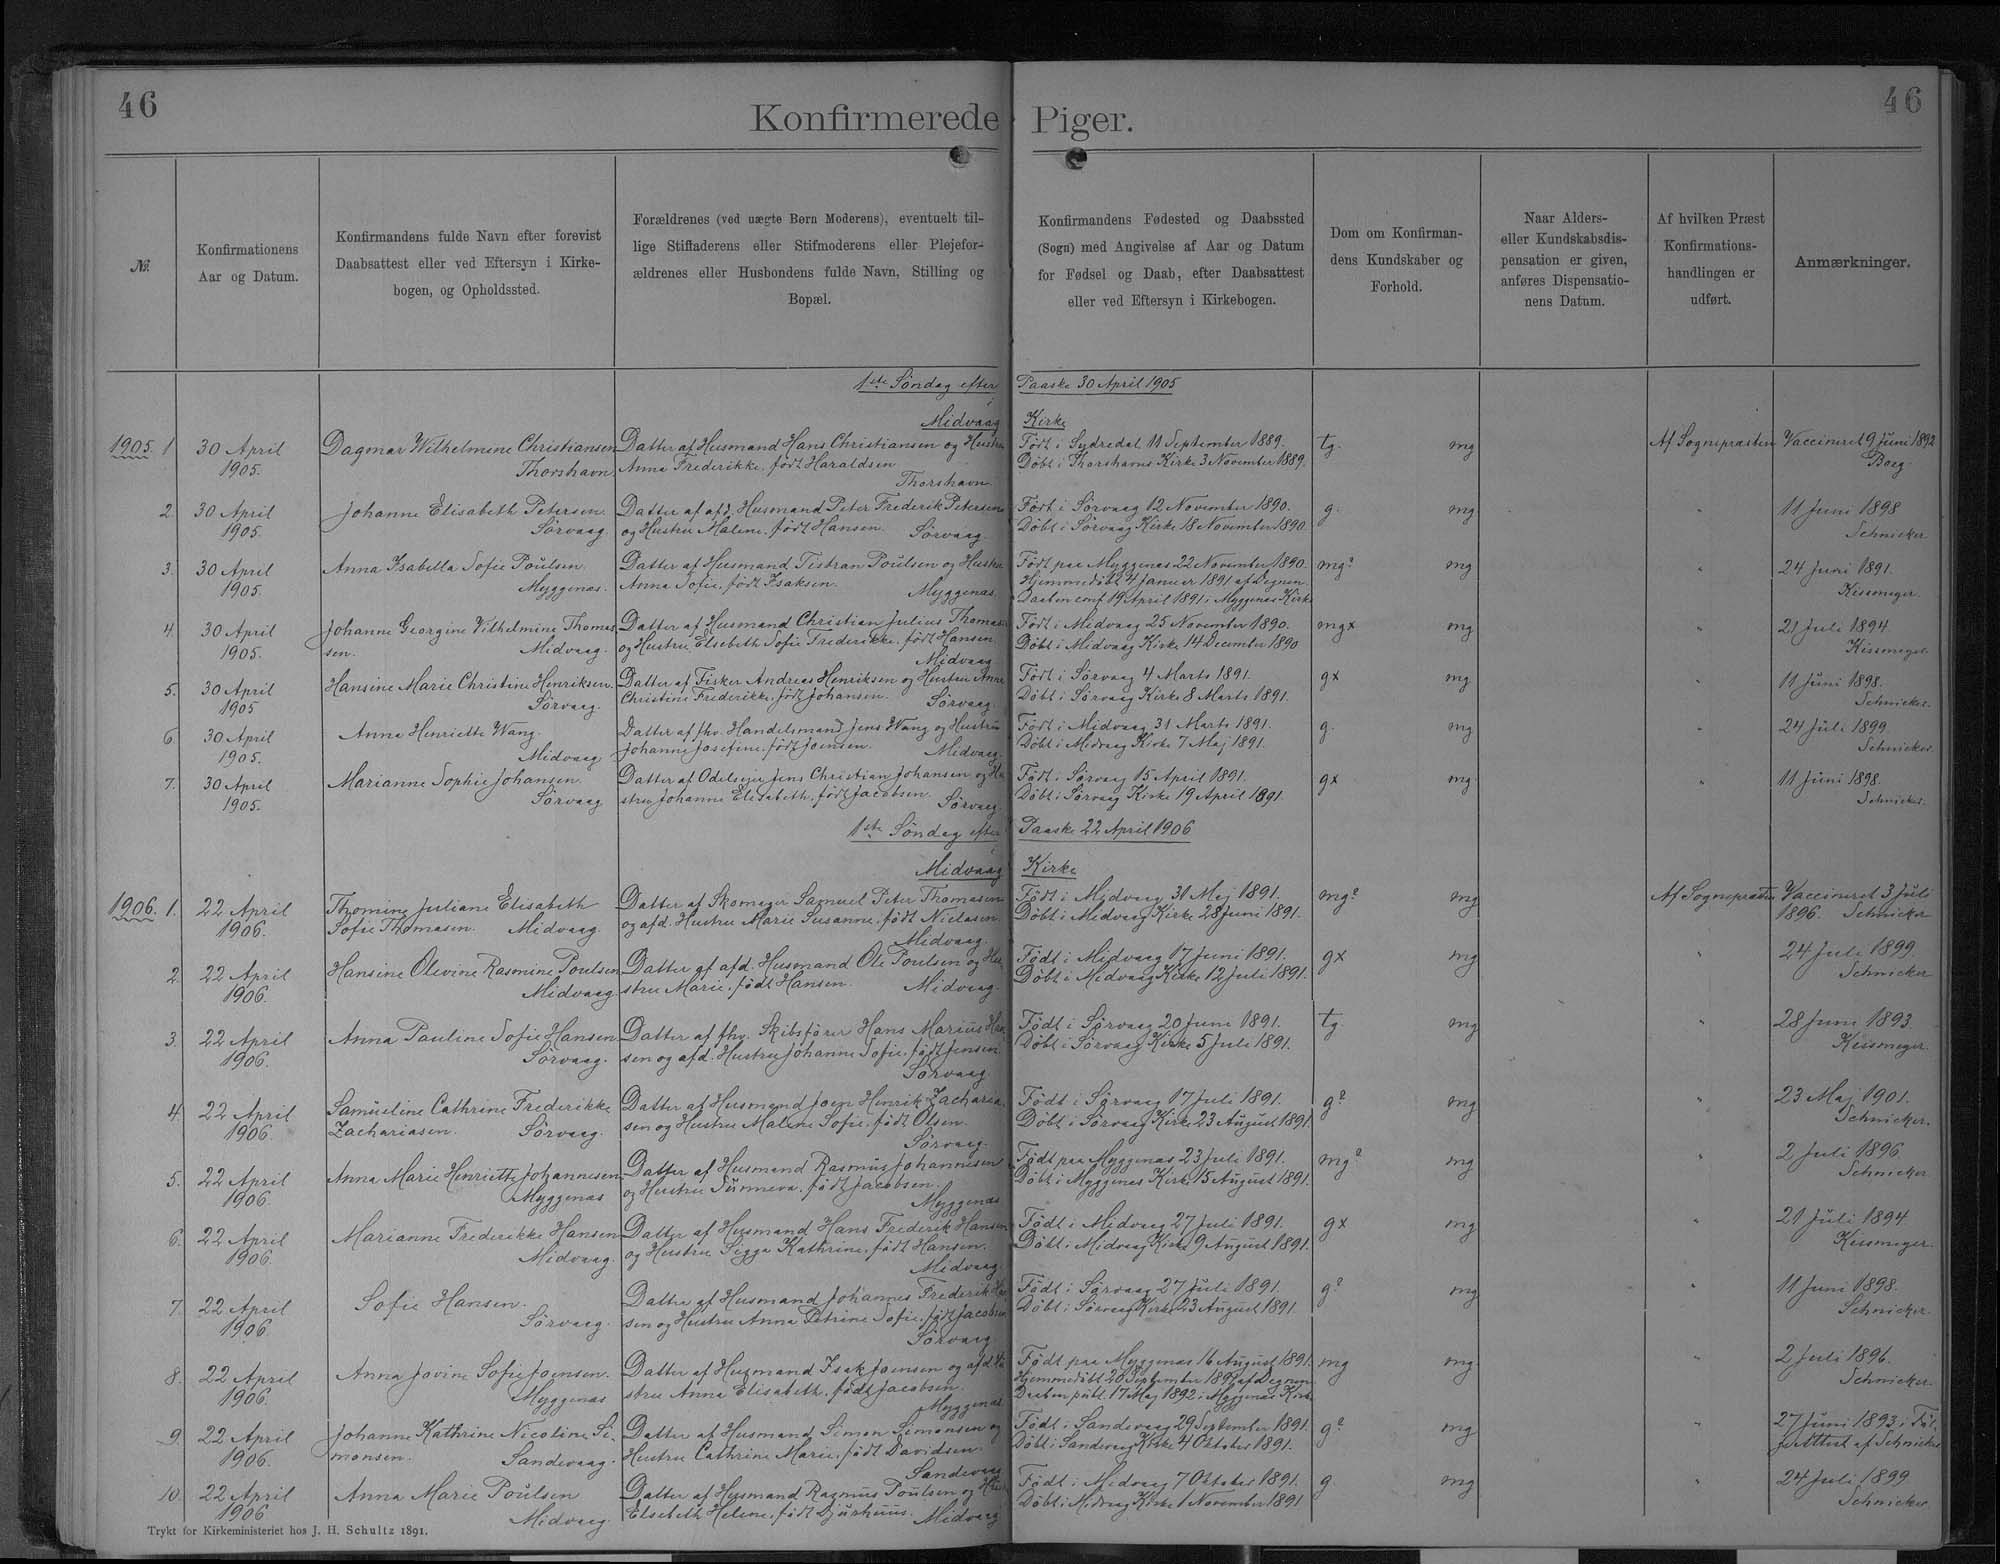 46
46
Konfirmerede Piger.
№.
Konfirmationens
Aar og Datum.
Konfirmandens fulde Navn efter forevist
Daabsattest eller ved Eftersyn i Kirke-
bogen, og Opholdssted.
Forældrenes (ved uægte Børn Moderens), eventuelt til-
lige Stiffaderens eller Stifmoderens eller Plejefor-
ældrenes eller Husbondens fulde Navn, Stilling og
Bopæl.
Konfirmandens Fødested og Daabssted
(Sogn) med Angivelse af Aar og Datum
for Fødsel og Daab, efter Daabsattest
eller ved Eftersyn i Kirkebogen.
Dom om Konfirman-
dens Kundskaber og
Forhold.
Naar Alders-
eller Kundskabsdis-
pensation er given,
anføres Dispensatio-
nens Datum.
Af hvilken Præst
Konfirmations-
handlingen er
udført.
Anmærkninger.
1ste Søndag efter Paaske 30 April 1905
i
Midvaag Kirke
1905. 1 30 April
1905.
Dagmar Wilhelmine Christiansen
Thorshavn
Datter af Husmand Hans Christiansen og Hustru
Anna Frederikke, født Haraldsen
Thorshavn.
Født i Sydredal 11 September 1889.
Døbt i Thorshavns Kirke 3 November 1889.
tg. mg
Af Sognepræsten
Vaccineret 9 Juni 1892
Boeg.
2. 30 April
1905.
Johanne Elisabeth Petersen.
Sørvaag.
Datter af afd. Husmand Peter Frederik Petersen
og Hustru Malene, født Hansen. Sørvaag.
Født i Sørvaag 12 November 1890.
Døbt i Sørvaag Kirke 18 November 1890
g. mg "
11 Juni 1898
Schnicker
3. 30 April
1905.
Anna Isabella Sofie Poulsen.
Myggenæs.
Datter af Husmand Tistran Poulsen og Hustru
Anna Sofie, født Isaksen. Myggenæs.
Født paa Myggenæs 22 November 1890.
Hjemmedøbt 4 Januar 1891 af Degnen.
Daaben conf. 19 April 1891 i Myggenæs Kirke
mg? mg "
24 Juni 1891.
Kissmeyer.
4. 30 April
1905.
Johanne Georgine Vilhelmine Thomas
sen. Midvaag.
Datter af Husmand Christian Julius Thomas
og Hustru Elsebeth Sofie Frederikke, født Hansen
Midvaag.
Født i Midvaag 25 November 1890.
Døbt i Midvaag Kirke 14 December 1890
mgx mg "
21 Juli 1894.
Kissmeyer
5. 30 April
1905
Hansine Marie Christine Henriksen.
Sørvaag.
Datter af Fisker Andreas Henriksen og Hustru Anne
Christine Frederikke, født Johansen. Sørvaag.
Født i Sørvaag 4 Marts 1891.
Døbt i Sørvaag Kirke 8 Marts 1891.
gx mg "
11 Juni 1898.
Schnicker.
6. 30 April
1905.
Anna Henriette Wang.
Midvaag
Datter af fhv. Handelsmand Jens Wang og Hustru
Johanne Josefine, født Joensen. Midvaag.
Født i Midvaag 31 Marts 1891.
Døbt i Midvaag Kirke 7 Maj 1891.
g. mg "
24 Juli 1899.
Schnicker.
7. 30 April
1905.
Marianne Sophie Johansen.
Sørvaag
Datter af Odelseier Jens Christian Johansen og Hu
stru Johanne Elisabeth, født Jacobsen. Sørvaag.
Født i Sørvaag 15 April 1891.
Døbt i Sørvaag Kirke 19 April 1891.
gx mg "
11 Juni 1898.
Schnicker.
1ste Søndag efter Paaske 22 April 1906
i
Midvaag Kirke
1906. 1. 22 April
1906.
Thomine Juliane Elisabeth
Sofie Thomasen. Midvaag.
Datter af Skomager Samuel Peter Thomasen
og afd. Hustru Marie Susanne, født Niclasen.
Midvaag.
Født i Midvaag 31 Maj 1891.
Døbt i Midvaag Kirke 28 Juni 1891.
mg? mg
Af Sognepræsten
Vaccineret 3 Juli
1896. Schnicker
2. 22 April
1906.
Hansine Olevine Rasmine Poulsen
Midvaag.
Datter af afd. Husmand Ole Poulsen og Hu
stru Marie, født Hansen. Midvaag.
Født i Midvaag 17 Juni 1891.
Døbt i Midvaag Kirke 12 Juli 1891.
gx mg "
24 Juli 1899.
Schnicker
3. 22 April
1906.
Anna Pauline Sofie Hansen
Sørvaag.
Datter af fhv. Skibsfører Hans Marius Han
sen og afd. Hustru Johanne Sofie, født Jensen.
Sørvaag.
Født i Sørvaag 20 Juni 1891.
Døbt i Sørvaag Kirke 5 Juli 1891.
tg. mg "
28 Juni 1893.
Kissmeyer.
4. 22 April
1906.
Samueline Cathrine Frederikke
Zachariasen. Sørvaag.
Datter af Husmand Joen Henrik Zacharia
sen og Hustru Malene Sofie, født Olsen.
Sørvaag.
Født i Sørvaag 17 Juli 1891.
Døbt i Sørvaag Kirke 23 August 1891.
g? mg "
23 Maj 1901.
Schnicker.
5. 22 April
1906.
Anna Marie Henriette Johannesen.
Myggenæs
Datter af Husmand Rasmus Johannesen
og Hustru Sunneva, født Jacobsen.
Myggenæs
Født paa Myggenæs 23 Juli 1891.
Døbt i Myggenæs Kirke 15 August 1891.
mg? mg "
2 Juli 1896.
Schnicker.
6. 22 April
1906.
Marianne Frederikke Hansen
Midvaag.
Datter af Husmand Hans Frederik Hansen
og Hustru Sigga Kathrine, født Hansen.
Midvaag.
Født i Midvaag 27 Juli 1891.
Døbt i Midvaag Kirke 9 August 1891.
gx mg "
21 Juli 1894.
Kissmeyer.
7. 22 April
1906.
Sofie Hansen.
Sørvaag.
Datter af Husmand Johannes Frederik Han
sen og Hustru Anna Petrine Sofie, født Jacobsen
Sørvaag.
Født i Sørvaag 27 Juli 1891.
Døbt i Sørvaag Kirke 23 August 1891.
g? mg "
11 Juni 1898.
Schnicker.
8. 22 April
1906.
Anna Jovine Sofie Joensen.
Myggenæs
Datter af Husmand Isak Joensen og afd. Hu
stru Anna Elisabeth, født Jacobsen.
Myggenæs
Født paa Myggenæs 16 August 1891.
Hjemmedøbt 20 September 1891 af Degnen.
Daaben publ. 17 Maj 1892 i Myggenæs Kirke
mg mg "
2 Juli 1896.
Schnicker.
9. 22 April
1906.
Johanne Kathrine Nicoline Si-
monsen. Sandevaag.
Datter af Husmand Simon Simonsen og
Hustru Cathrine Marie, født Davidsen.
Sandevaag
Født i Sandevaag 29 September 1891.
Døbt i Sandevaag Kirke 4 Oktober 1891.
g? mg "
27 Juni 1893
af Schnicker
10. 22 April
1906
Anna Marie Poulsen
Midvaag.
Datter af Husmand Rasmus Poulsen og Hustru
Elsebeth Helene, født Djurhuus. Midvaag
Født i Midvaag 7 Oktober 1891.
Døbt i Midvaag Kirke 1 November 1891
g mg "
24 Juli 1899
Schnicker
Trykt for Kirkeministeriet hos J. H. Schultz 1891.